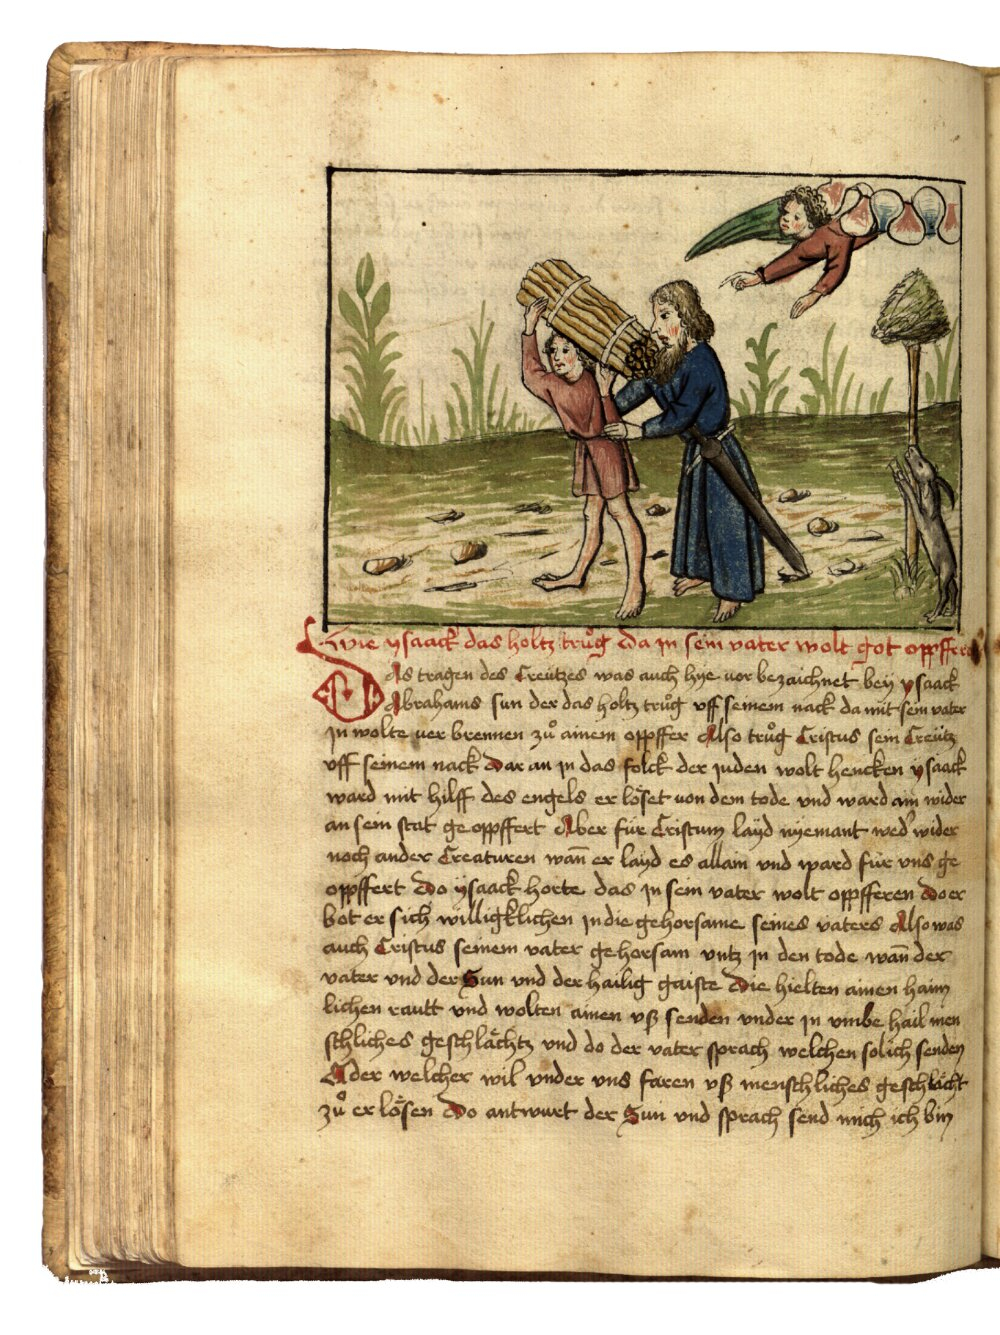 Wie ysaack das holtz trůg da in sein vater wolt got opffern
DAs tragen des Creützes was auch hye vor bezaichnet bey ysaack
Abrahams sun der das holtz trůg vff seinem nack da mit sein vater
in wolte verbrennen zů ainem opffer Also trůg Cristus sein Creütz
vff seinem nack dar an in das folck der iuden wolt hencken ysaack
ward mit hilff des engels erlöset von dem tode vnd ward ain wider
an sein stat geopffert Aber für Cristum layd nyemant wed' wider
noch ander Creaturen wan̄ er layd es allain vnd ward für vns ge
opffert Do ysaack horte das in sein vater wolt opfferen do er
bot er sich willigklichen in die gehorsame seines vaters Also was
auch Cristus seinem vater gehorsam vntz in den tode wan̄ der
vater vnd der Sun vnd der hailig gaiste die hielten ainen haim
lichen rautt vnd wolten ainen vß senden vnder in vmbe hail men
schliches geschlächtz vnd do der vater sprach welchen sol ich senden
Oder welcher wil vnder vns faren vß menschliches geschlächt
zů erlösen Do antwurt der Sun vnd sprach send mich ich bin